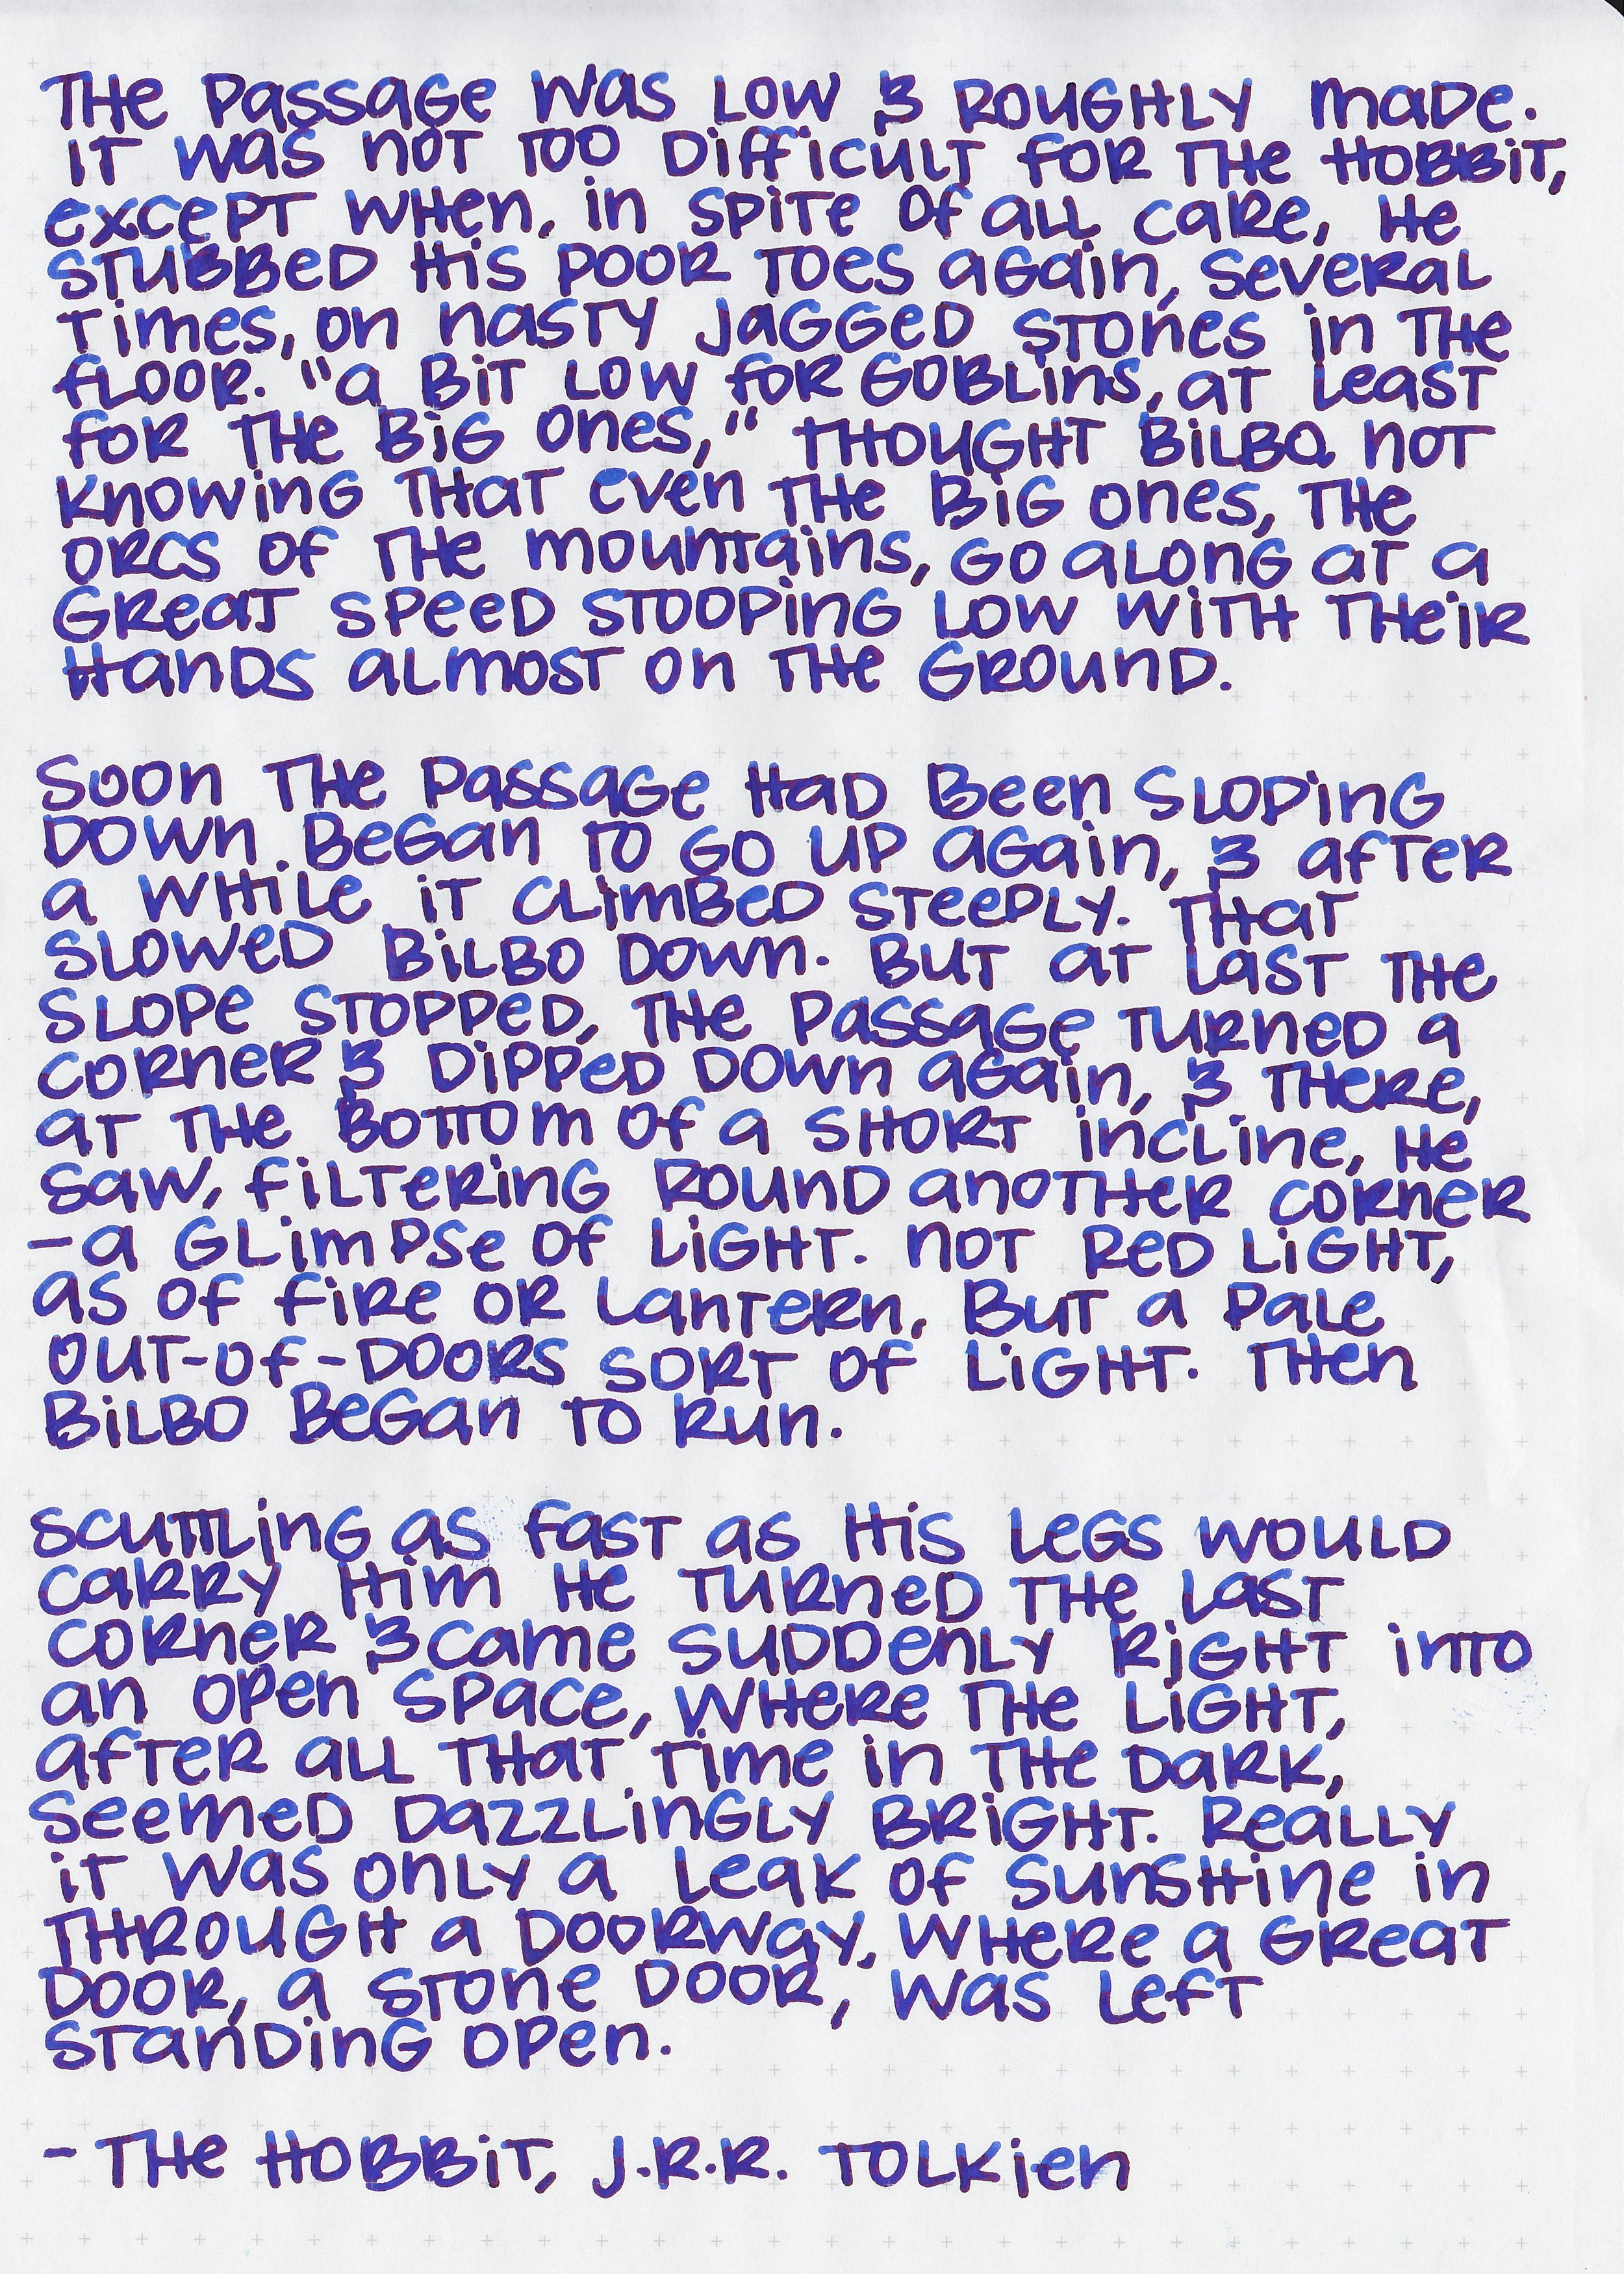 The passage was low & roughly made.
It was not too difficult for the hobbit,
except when, in spite of all care, he
stubbed his poor toes again, several
times, on nasty jagged stones in the
floor. "A bit low for goblins, at least
for the big ones," thought Bilbo, not
knowing that even the big ones, the
orcs of the mountains, go along at a
great speed stooping low with their
hands almost on the ground.

Soon the passage had been sloping
down, began to go up again, & after
a while it climbed steeply. That
slowed Bilbo down. But at last the
slope stopped, the passage turned a
corner & dipped down again, & there,
at the bottom of a short incline, he
saw, filtering round another corner
-a glimpse of light. Not red light,
as of fire or lantern, but a pale
out-of-doors sort of light. Then
Bilbo began to run.

Scuttling as fast as his legs would
carry him he turned the last
corner & came suddenly right into
an open space, where the light,
after all that time in the dark,
seemed dazzlingly bright. Really
it was only a leak of sunshine in
through a doorway, where a great
door, a stone door, was left
standing open.

- The Hobbit, J.R.R. Tolkien